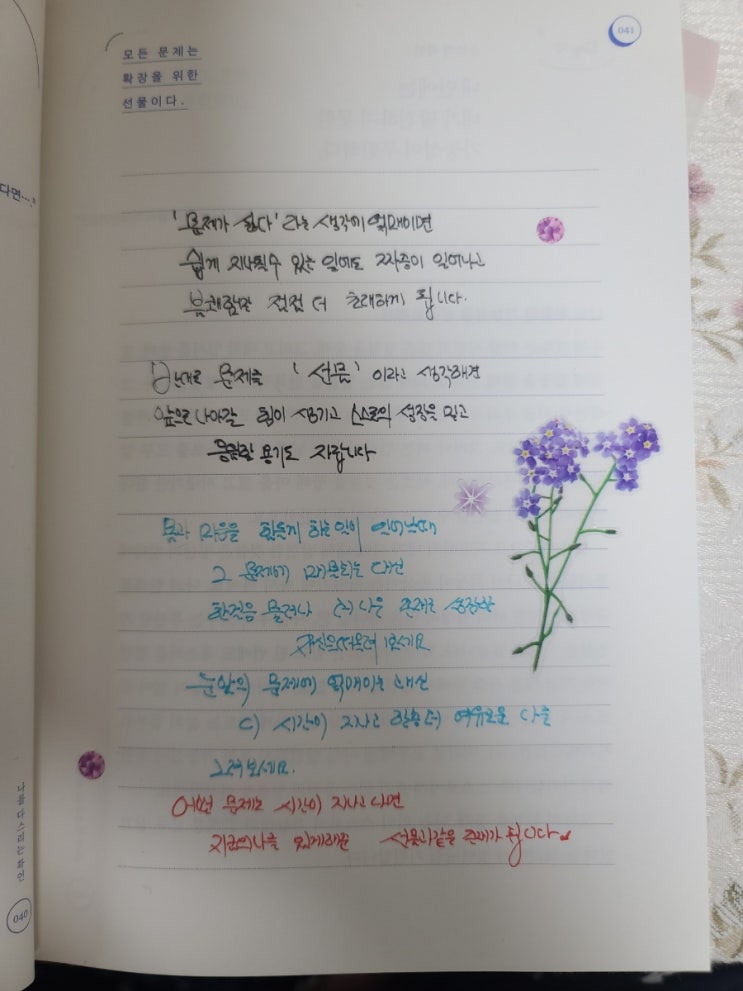 041
모든 문제는
확장을 위한
선물이다.
다면…."
'문제가 싫다' 라는 생각에 얽매이면
쉽게 지나칠수 있는 일에도 짜증이 일어나고
불쾌함만 점점 더 초래하게 됩니다.
반대로 문제를 '선물' 이라고 생각해면
앞으로 나아갈 힘이 생기고 스스로의 성장을 믿고
용기도 자랍니다
몸과 마음을 힘들게 하는일이 일어날때
그 문제에 파묻히는 대신
한걸음 물러나 더 나은 존재로 성장한
자신을 떠올려 보세요
눈앞의 문제에 얽매이는 대신
이 시간이 지나고 한층더 여유로울 나를
그려보세요.
어떤 문제는 시간이 지나고 나면
지금의나를 있게해준 선물과같은 존재가 됩니다
나를 다스리는 확언
040